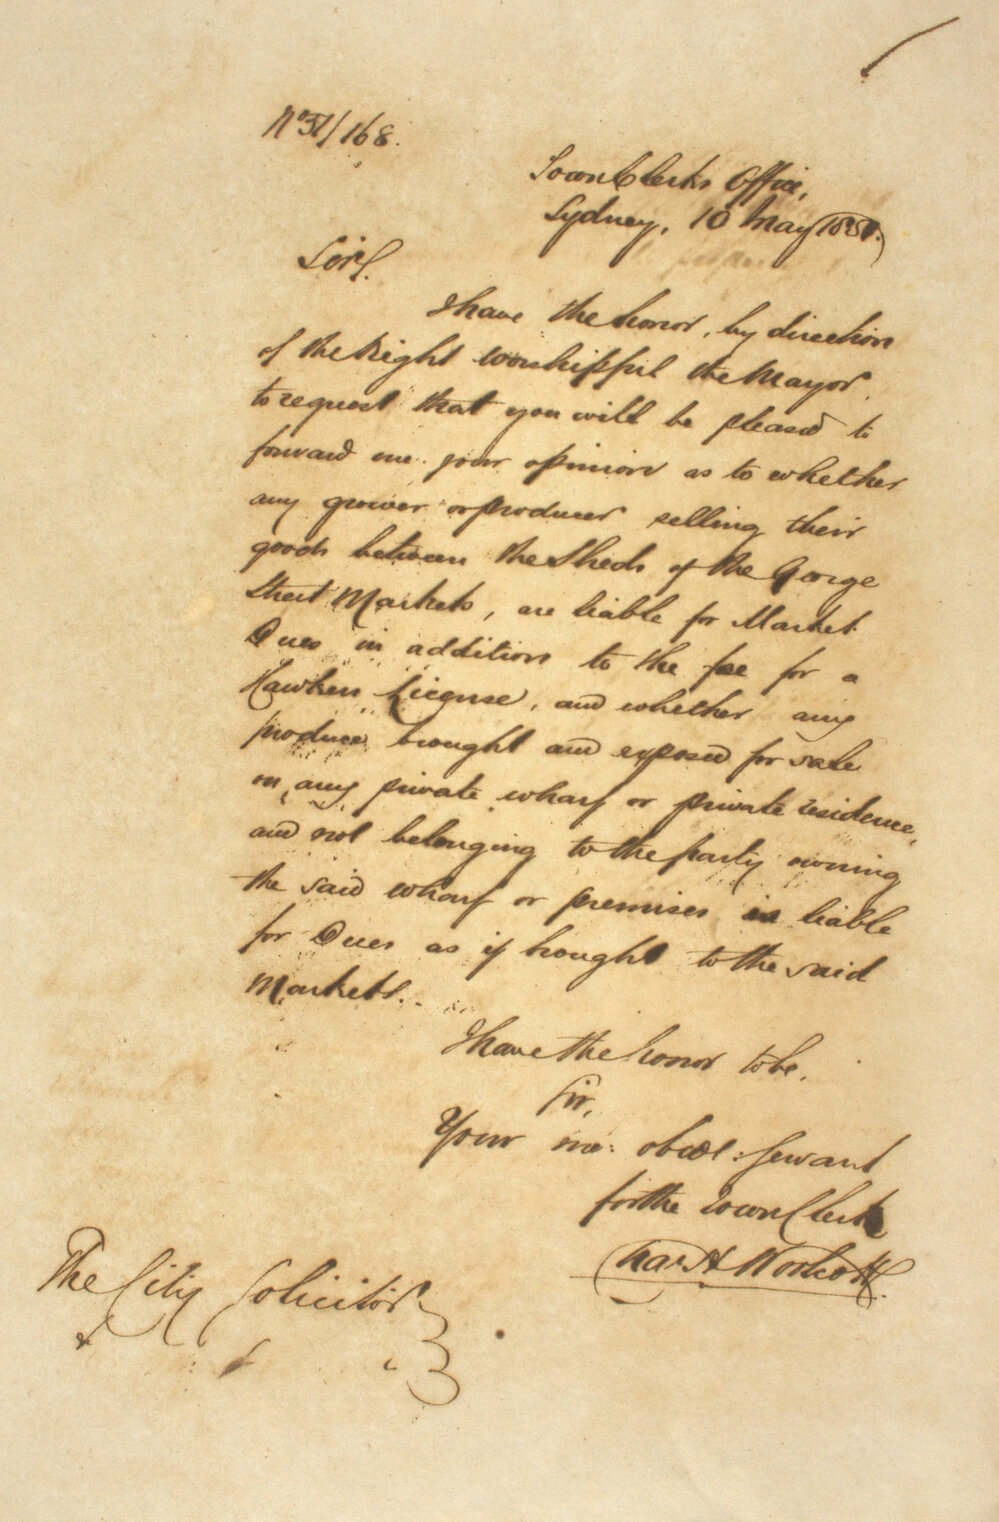 No 51/168.
Town Clerks Office,
Sydney, 10 May 1851.
Sir,
I have the honor, by direction
of the Right Worshipful the Mayor,
to request that you will be pleased to
forward me your opinion as to whether
any grower or producer selling their
goods between the Sheds of the George
Street Markets, are liable for Market
Dues in addition to the fee for a
Hawkers License, and whether any
produce brought and exposed for sale
on any private wharf or private residence,
and not belonging to the party owning
the said wharf or premises is liable
for Dues as if brought to the said
Markets.
I have the honor to be,
Sir,
Your mo: obedt: Servant
for the Town Clerk
Chas H Woolcott
The City Solicitor